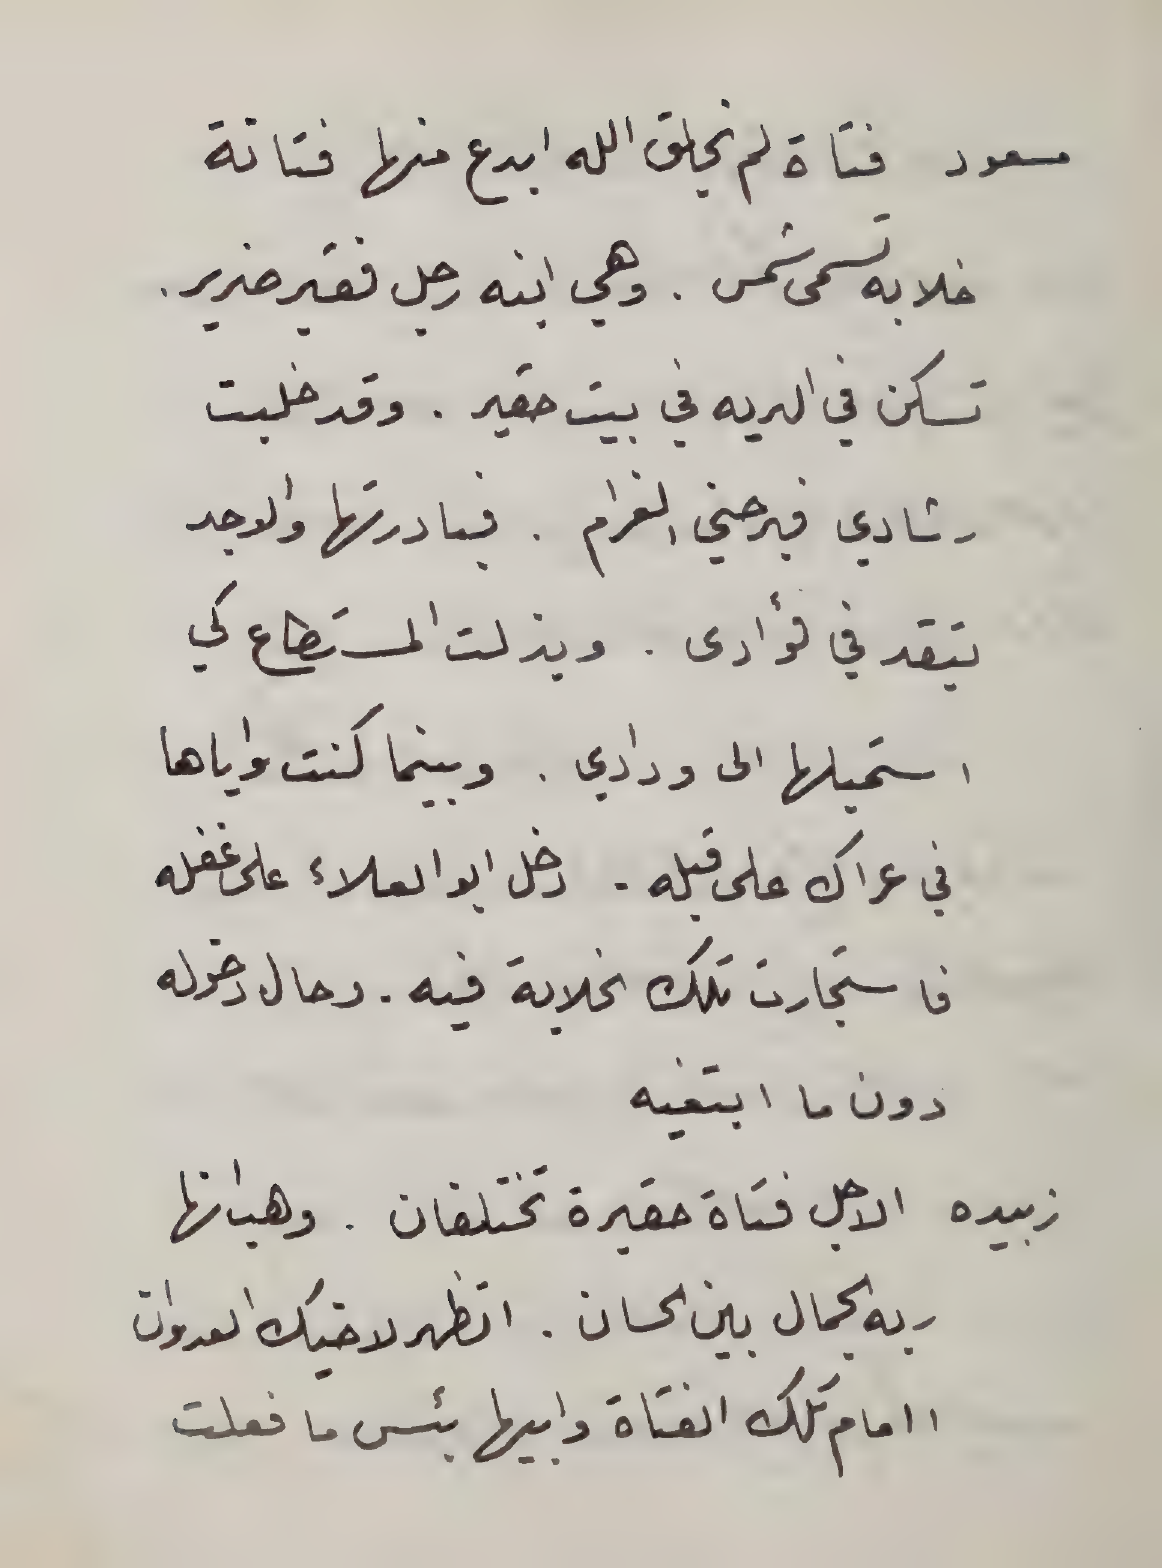 مسعود فتاة لم يخلق الله ابدع منها فتانة
خلابه تسمى شمس . وهي ابنه رجل فقير ضرير .
تسكن في البريه في بيت حقير . وقد خلبت
رشادي فبرحني الغرام . فبادرتها والوجد
يتقد في فؤادى . وبذلت المستطاع كي
استميلها الى ودادي . وبينما كنت واياها
في عراك على قبله . دخل ابو العلاء على غفله
فاستجارت تلك الخلابة فيه . وحال دخوله
دون ما ابتغيه
زبيده الاجل فتاة حقيرة تختلفان . وهب انها
ربه الجمال بين الحسان . اتظهر لاخيك العدوان
اامام تلك الفتاة وابيها بئس ما فعلت